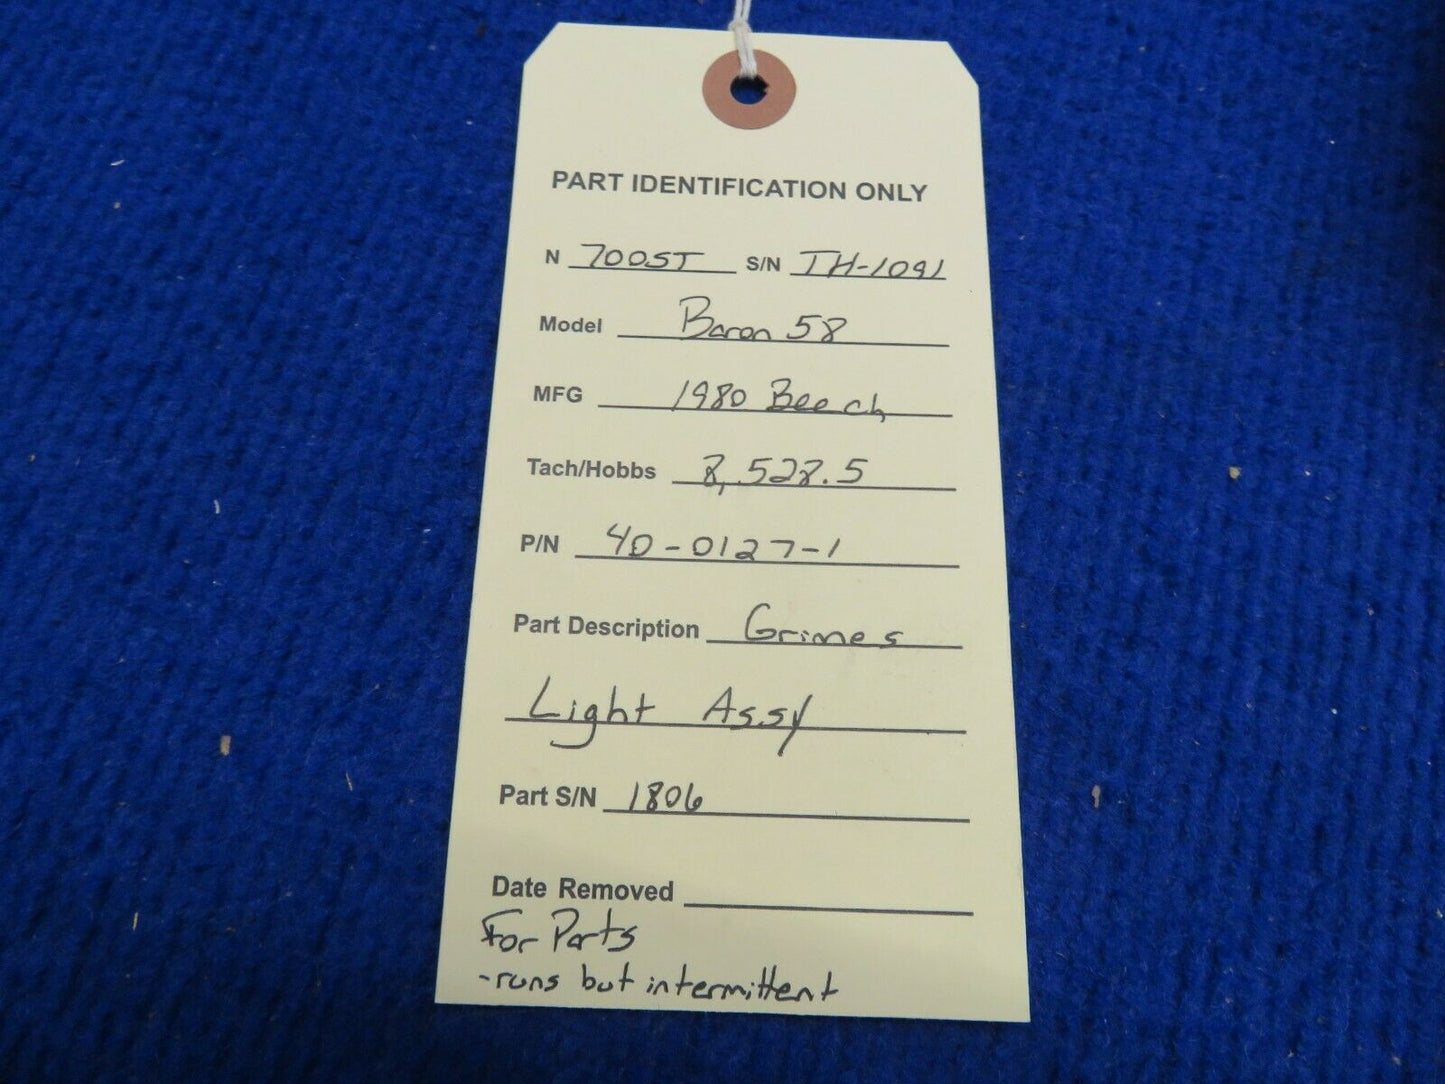 PART IDENTIFICATION ONLY
N 700ST S/N TH-1091
Model Baron 58
MFG 1980 Beech
Tach/Hobbs 8,528.5
P/N 40-0127-1
Part Description Grimes
Light Assy
Part S/N 1806
Date Removed
For Parts
-runs but intermittent